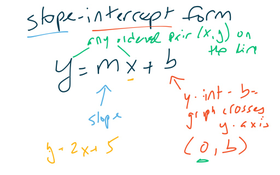 slope-intercept form
any ordered pair (x,y) on the line
y=mx+b
slope
y-int - b=
graph crosses
y axis
(0,b)
y=2x+5